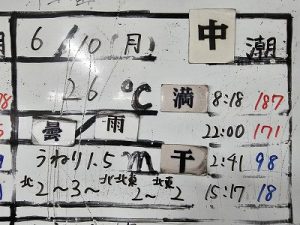 6/10(月) 中潮
26℃ 満 8:18 187
曇/雨 22:00 171
うねり1.5m 干 2:41 98
北2~3~北北東2~北東2 15:17 18